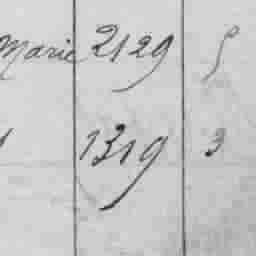 Marie 2129 5
1319 3